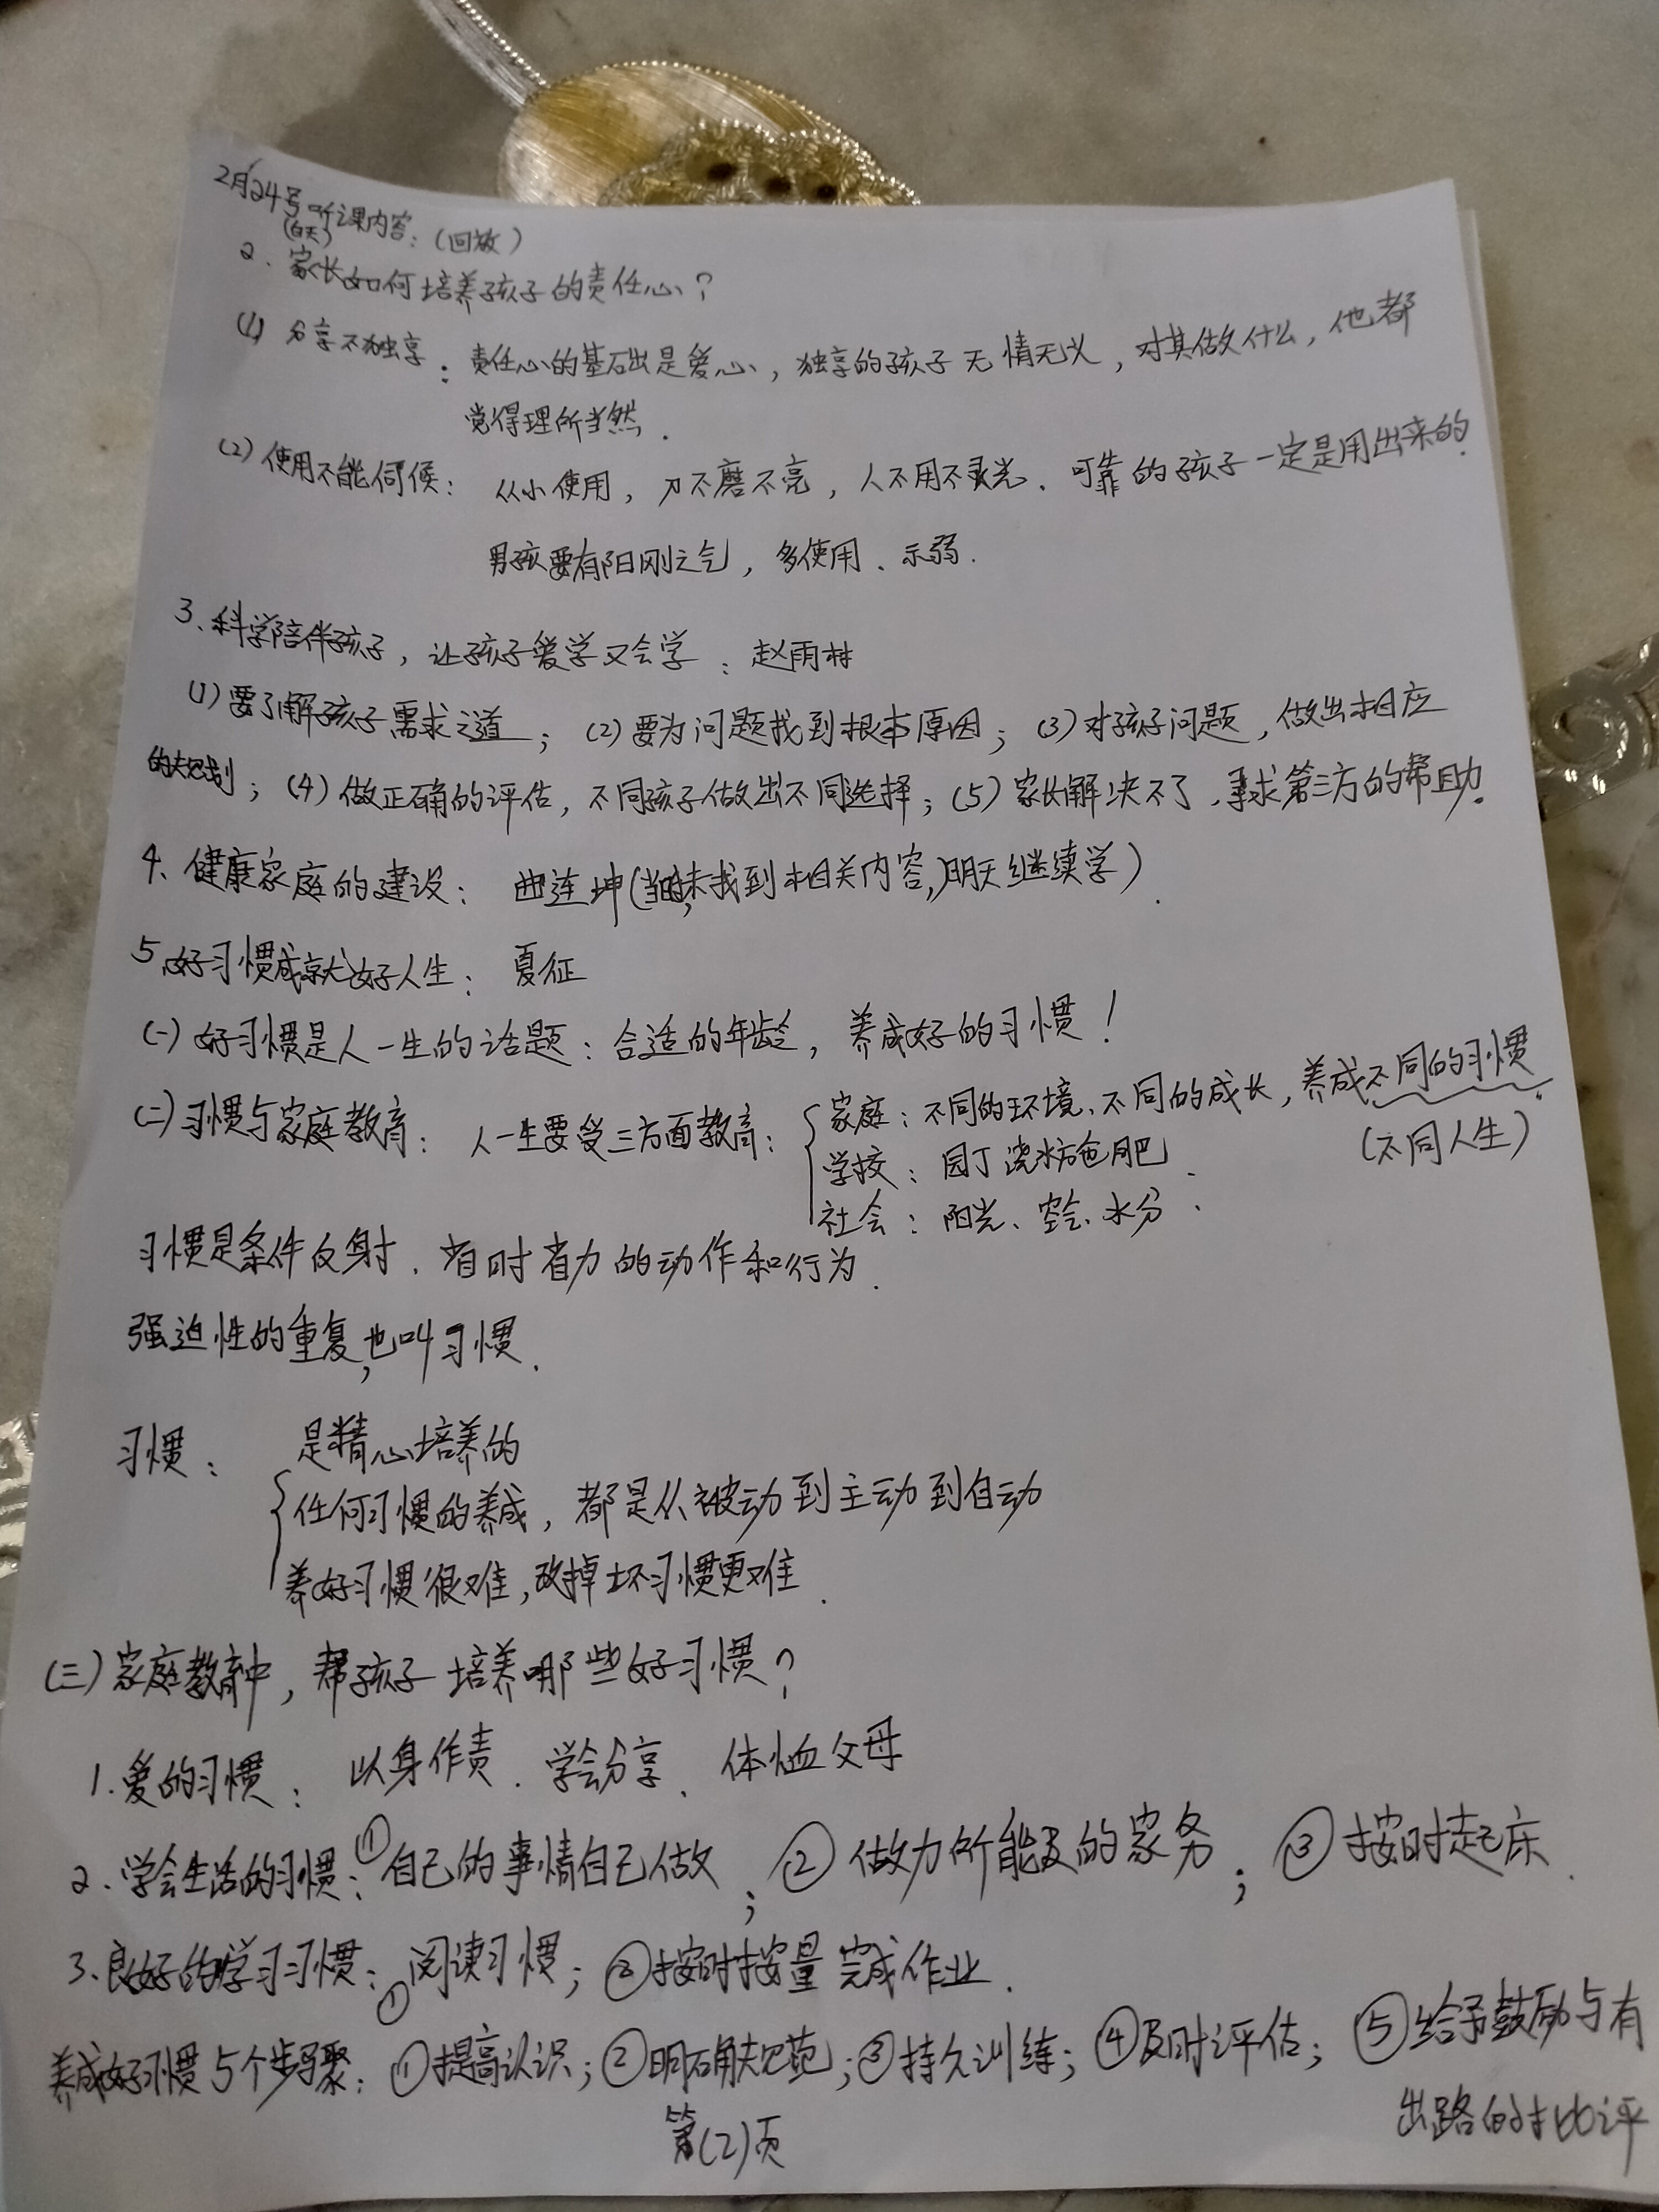 2月24号听课内容：（回放）
（白天）
2、家长如何培养孩子的责任心？
(1) 分享不独享：责任心的基石出是爱心，独享的孩子无情无义，对其做什么，他都
觉得理所当然.
(2) 使用不能伺候：从小使用，刀不磨不亮，人不用不灵光. 可靠的孩子一定是用出来的.
男孩要有阳刚之气，多使用、示弱.
3、科学陪伴孩子，让孩子爱学又会学：赵雨林
(1) 要了解孩子需求之道；(2) 要为问题找到根本原因；(3) 对孩子问题，做出相应
的规划；(4) 做正确的评估，不同孩子做出不同选择；(5) 家长解决不了，寻求第三方的帮助.
4、健康家庭的建设：曲连坤(当时未找到相关内容,明天继续学).
5、好习惯成就好人生：夏征
(一) 好习惯是人一生的话题：合适的年龄，养成好的习惯！
(二) 习惯与家庭教育：人一生要受三方面教育：家庭：不同的环境、不同的成长，养成不同的习惯.
（不同人生）
学校：园丁浇水施肥.
社会：阳光、空气、水分.
习惯是条件反射. 省时省力的动作和行为.
强迫性的重复,也叫习惯.
习惯：是精心培养的
任何习惯的养成，都是从被动到主动到自动
养好习惯很难,改掉坏习惯更难.
(三) 家庭教育中，帮孩子培养哪些好习惯？
1.爱的习惯：以身作责. 学会分享. 体恤父母
2、学会生活的习惯：①自己的事情自己做；②做力所能及的家务；③按时起床.
3、良好的学习习惯：①阅读习惯；②按时按量完成作业.
养成好习惯5个步骤：①提高认识；②明确规范；③持久训练；④及时评估；⑤给予鼓励与有
出路的批评
第(2)页